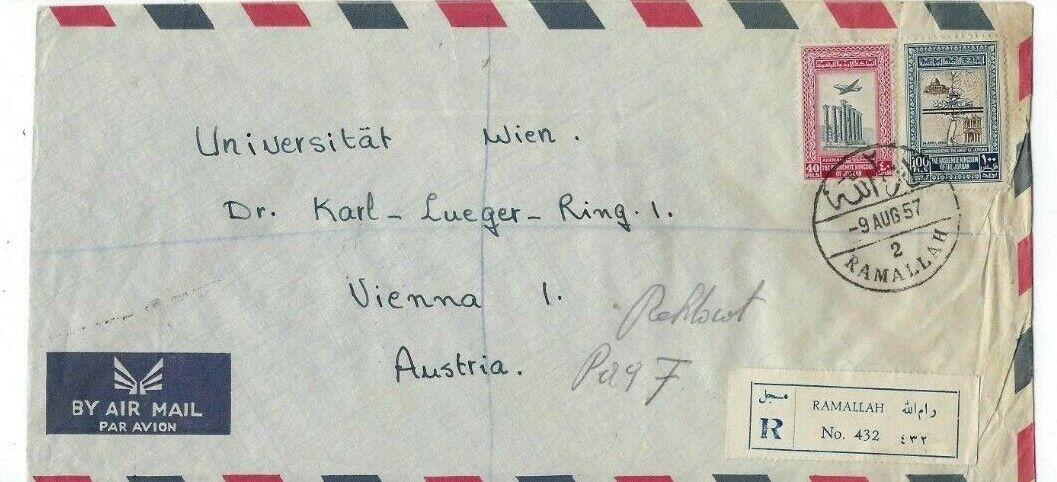 40
FILS
٤٠
THE HASHEMITE KINGDOM
OF THE JORDAN
100
FILS
١٠٠
THE HASHEMITE KINGDOM
OF THE JORDAN
رام الله
-9 AUG 57
2
RAMALLAH
Universität Wien.
Dr. Karl-Lueger-Ring. 1.
Vienna 1.
Austria.
BY AIR MAIL
PAR AVION
مسجل
R
RAMALLAH رام الله
No. 432 ٤٣٢